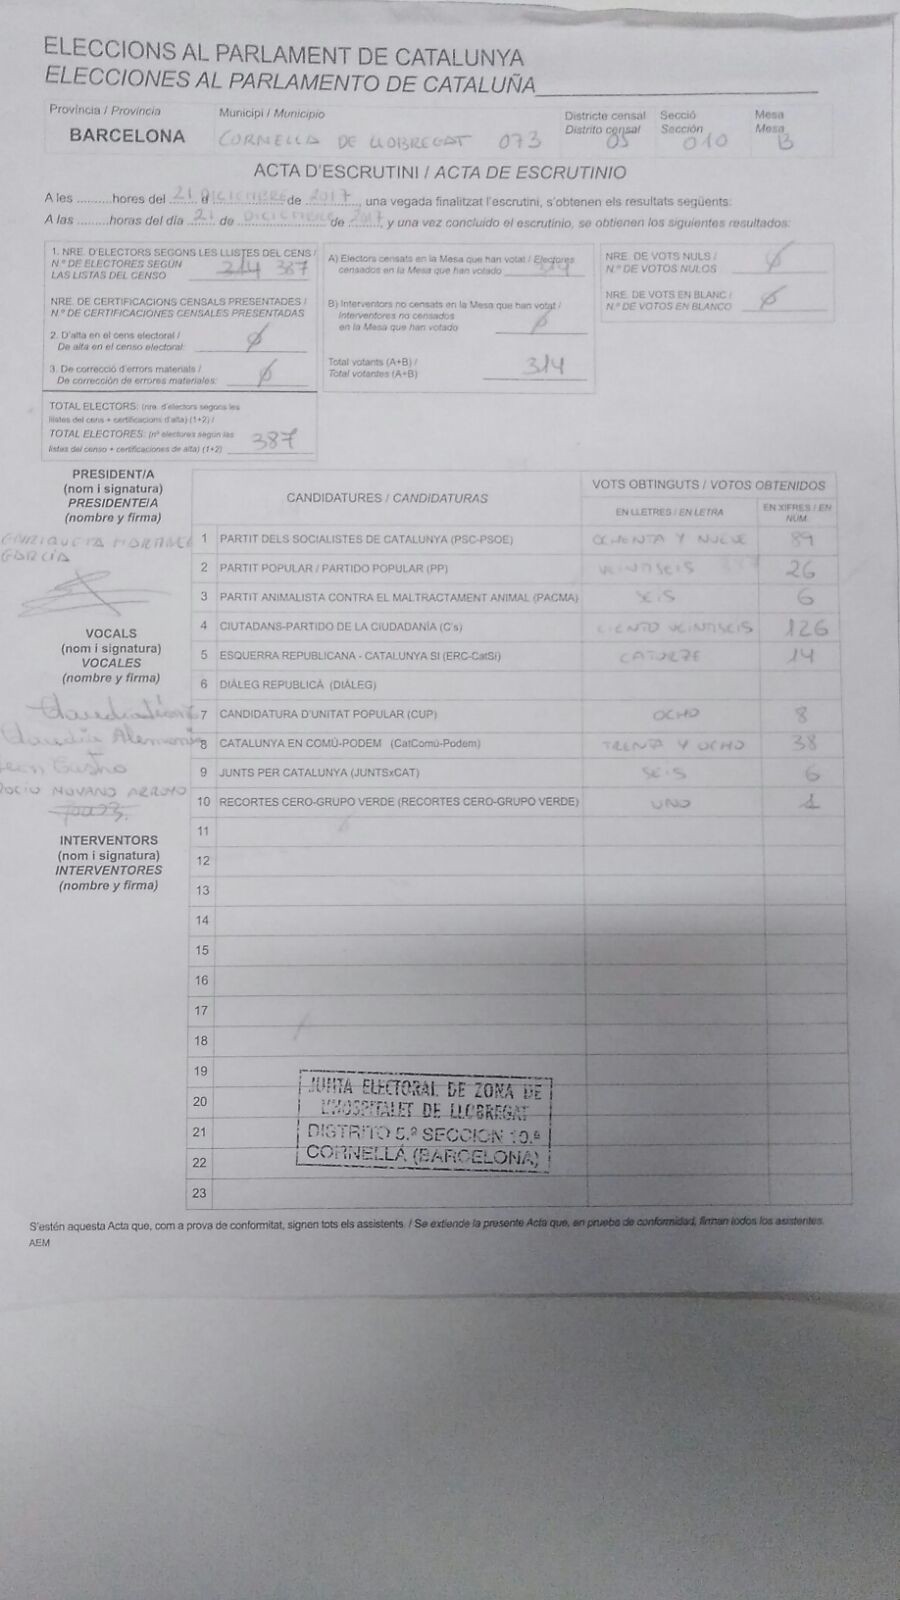 ELECCIONS AL PARLAMENT DE CATALUNYA
ELECCIONES AL PARLAMENTO DE CATALUÑA
Província / Provincia Municipi / Municipio Districte censal Secció Mesa
Distrito censal Sección Mesa
BARCELONA CORNELLA DE LLOBREGAT 073 05 010 B
ACTA D'ESCRUTINI / ACTA DE ESCRUTINIO
A les ..........hores del 21 d DICIEMBRE de 2017, una vegada finalitzat l'escrutini, s'obtenen els resultats següents:
A las .........horas del día 21 de DICIEMBRE de 2017, y una vez concluido el escrutinio, se obtienen los siguientes resultados:
1. NRE. D'ELECTORS SEGONS LES LLISTES DEL CENS /
N.º DE ELECTORES SEGÚN
LAS LISTAS DEL CENSO 314 387
NRE. DE CERTIFICACIONS CENSALS PRESENTADES /
N.º DE CERTIFICACIONES CENSALES PRESENTADAS
2. D'alta en el cens electoral /
De alta en el censo electoral: Ø
3. De correcció d'errors materials /
De corrección de errores materiales: Ø
TOTAL ELECTORS: (nre. d'electors segons les
llistes del cens + certificacions d'alta) (1+2) /
TOTAL ELECTORES: (nº electores según las
listas del censo + certificaciones de alta) (1+2) 387
A) Electors censats en la Mesa que han votat / Electores
censados en la Mesa que han votado 314
B) Interventors no censats en la Mesa que han votat /
Interventores no censados
en la Mesa que han votado Ø
Total votants (A+B) /
Total votantes (A+B) 314
NRE. DE VOTS NULS /
N.º DE VOTOS NULOS Ø
NRE. DE VOTS EN BLANC /
N.º DE VOTOS EN BLANCO Ø
PRESIDENT/A
(nom i signatura)
PRESIDENTE/A
(nombre y firma)
GARCÍA
VOCALS
(nom i signatura)
VOCALES
(nombre y firma)
INTERVENTORS
(nom i signatura)
INTERVENTORES
(nombre y firma)
CANDIDATURES / CANDIDATURAS VOTS OBTINGUTS / VOTOS OBTENIDOS
EN LLETRES / EN LETRA EN XIFRES / EN NUM.
1 PARTIT DELS SOCIALISTES DE CATALUNYA (PSC-PSOE) OCHENTA Y NUEVE 89
2 PARTIT POPULAR / PARTIDO POPULAR (PP) VEINTISEIS 26
3 PARTIT ANIMALISTA CONTRA EL MALTRACTAMENT ANIMAL (PACMA) SEIS 6
4 CIUTADANS-PARTIDO DE LA CIUDADANÍA (C's) CIENTO VEINTISEIS 126
5 ESQUERRA REPUBLICANA - CATALUNYA SI (ERC-CatSí) CATORZE 14
6 DIÀLEG REPUBLICÀ (DIÀLEG)
7 CANDIDATURA D'UNITAT POPULAR (CUP) OCHO 8
8 CATALUNYA EN COMÚ-PODEM (CatComú-Podem) TRENTA Y OCHO 38
9 JUNTS PER CATALUNYA (JUNTSxCAT) SEIS 6
10 RECORTES CERO-GRUPO VERDE (RECORTES CERO-GRUPO VERDE) UNO 1
11
12
13
14
15
16
17
18
19
20
21
22
23
JUNTA ELECTORAL DE ZONA DE
L'HOSPITALET DE LLOBREGAT
DISTRITO 5.º SECCION 10.ª
CORNELLÁ (BARCELONA)
S'estén aquesta Acta que, com a prova de conformitat, signen tots els assistents. / Se extiende la presente Acta que, en prueba de conformidad, firman todos los asistentes.
AEM